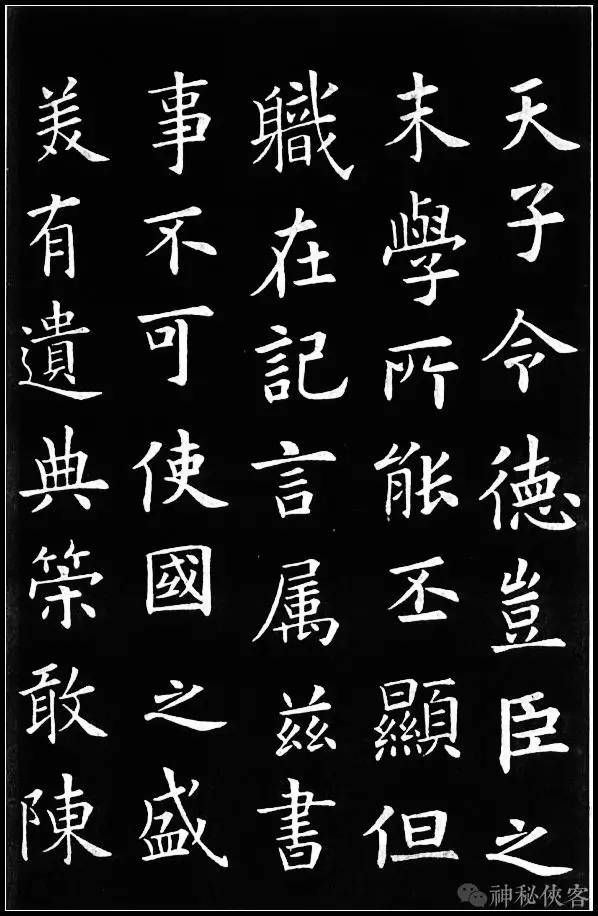 天子令德豈臣之
末學所能丕顯但
軄在記言属茲書
事不可使國之盛
美有遺典策敢陳
神秘俠客